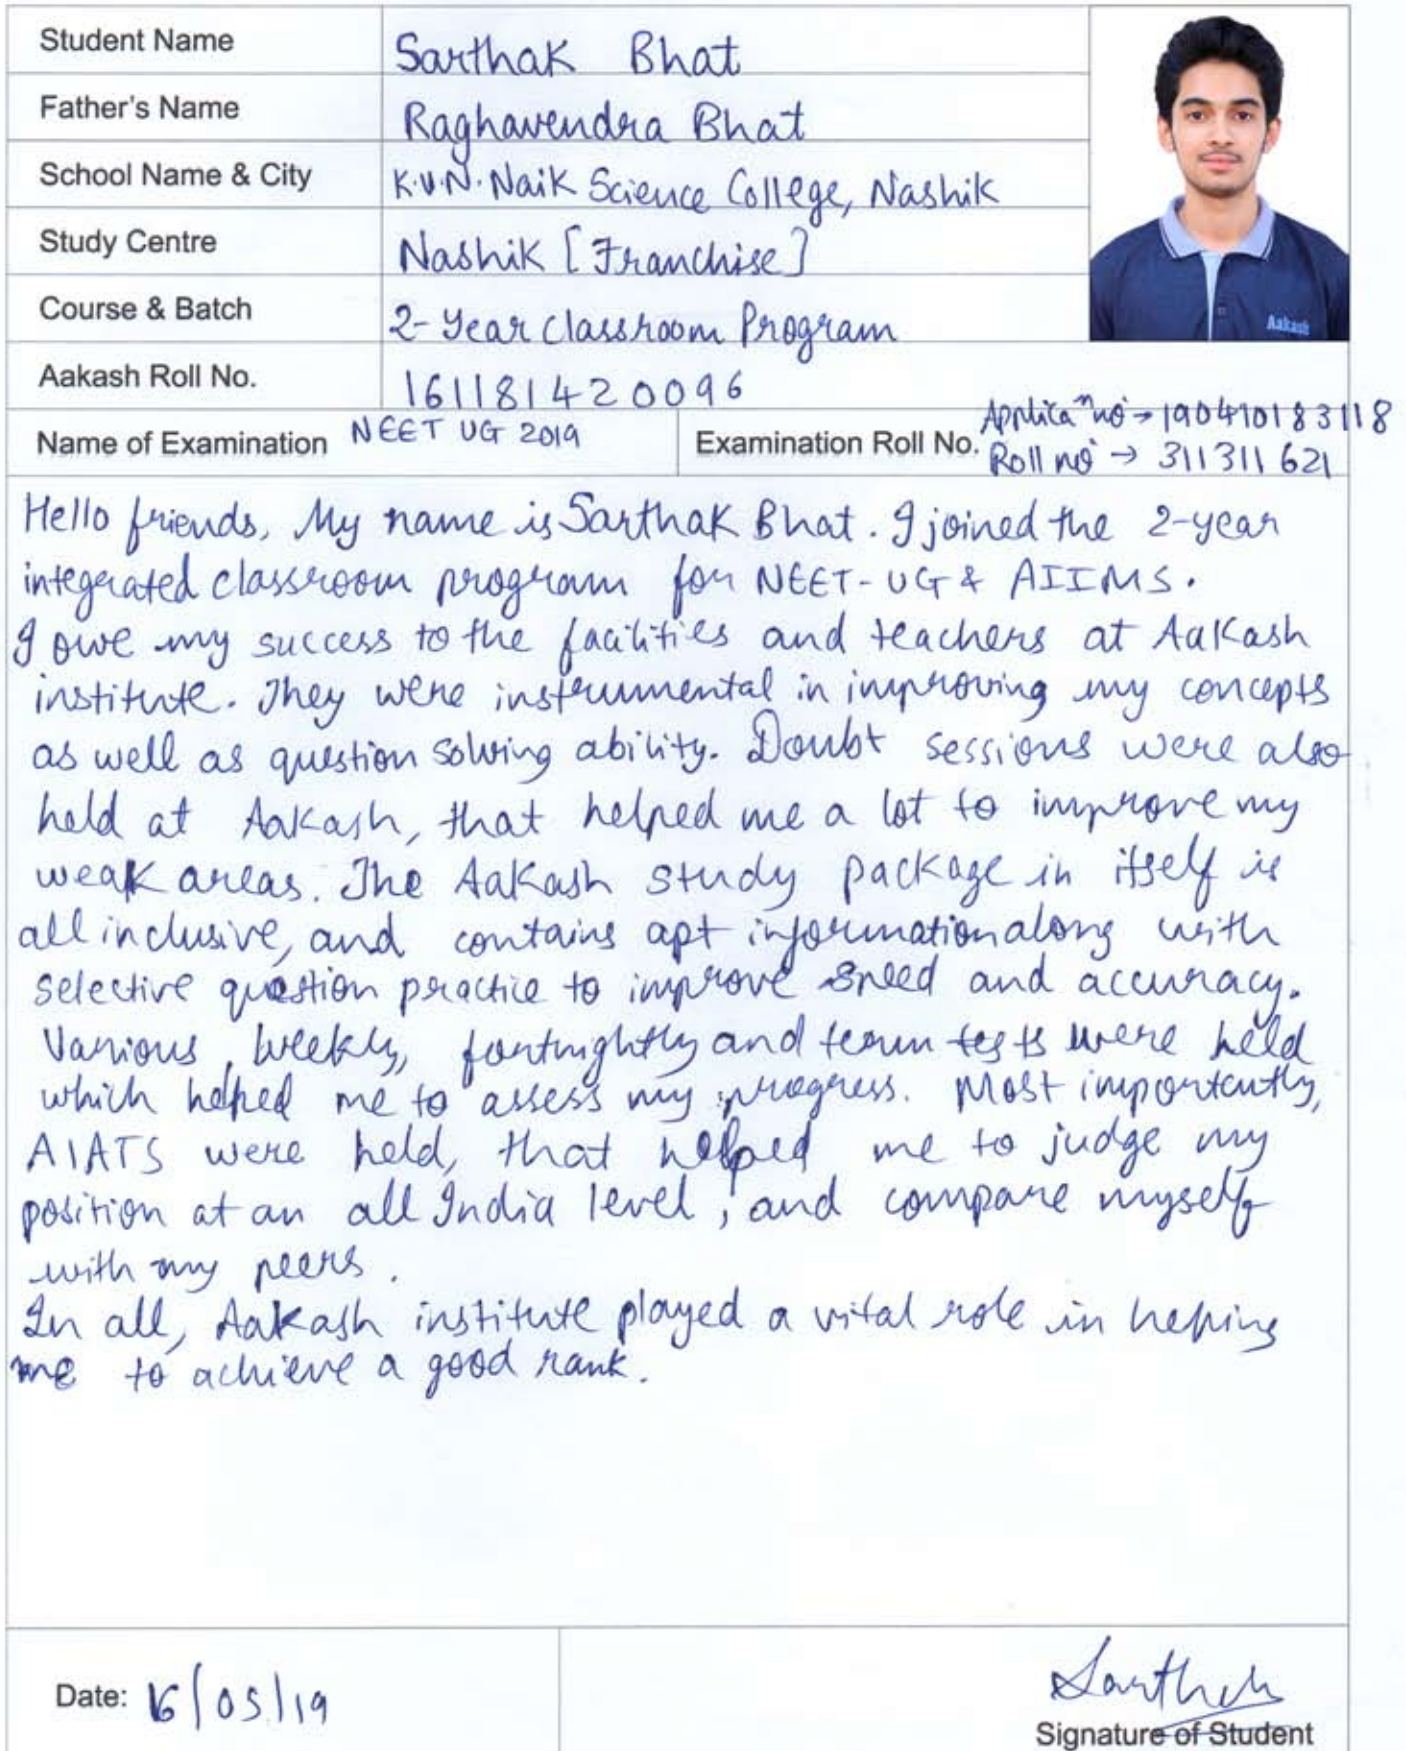 Student Name Sarthak Bhat
Father's Name Raghavendra Bhat
School Name & City K.V.N. Naik Science College, Nashik
Study Centre Nashik [Franchise]
Course & Batch 2-Year Classroom Program
Aakash
Aakash Roll No. 161181420096
Name of Examination NEET UG 2019 Examination Roll No. Applica^n no → 190410183118
Roll no → 311311621
Hello friends, My name is Sarthak Bhat. I joined the 2-year
integrated classroom program for NEET-UG & AIIMS.
I owe my success to the facilities and teachers at Aakash
institute. They were instrumental in improving my concepts
as well as question solving ability. Doubt sessions were also
held at Aakash, that helped me a lot to improve my
weak areas. The Aakash study package in itself is
all inclusive, and contains apt information along with
selective question practice to improve speed and accuracy.
Various, weekly, fortnightly and term tests were held
which helped me to assess my progress. Most importantly,
AIATS were held, that helped me to judge my
position at an all India level, and compare myself
with my peers.
In all, Aakash institute played a vital role in helping
me to achieve a good rank.
Date: 16/05/19
Sarthak
Signature of Student